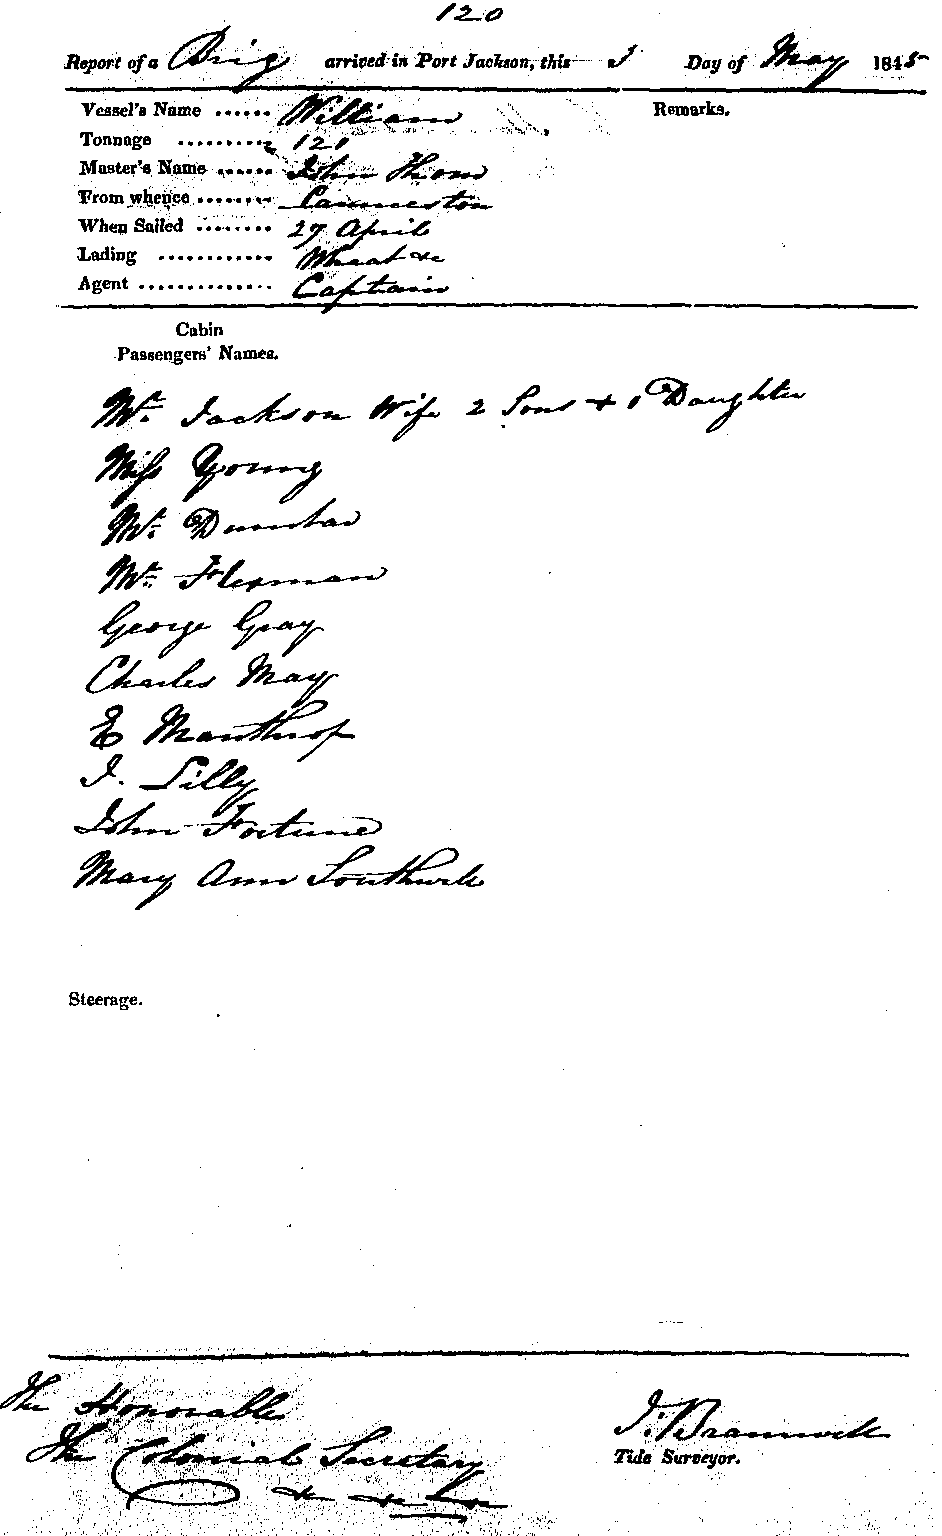 120
Report of a Brig arrived in Port Jackson, this 3 Day of May 1845
Vessel's Name ...... William Remarks.
Tonnage ......... 121
Master's Name ...... John Thom
From whence ........ Launceston
When Sailed ........ 27 April
Lading ............ Wheat &c
Agent .............. Captain
Cabin
Passengers' Names.
Mr. Jackson Wife 2 Sons + 1 Daughter
Miss Young
Mr. Dunbar
Mr. Flexman
George Gray
Charles May
E Manthrop
J. Lilly
John Fortune
Mary Ann Southwell
Steerage.
The Honorable
The Colonial Secretary
&c &c &c
J. Bramwell
Tide Surveyor.